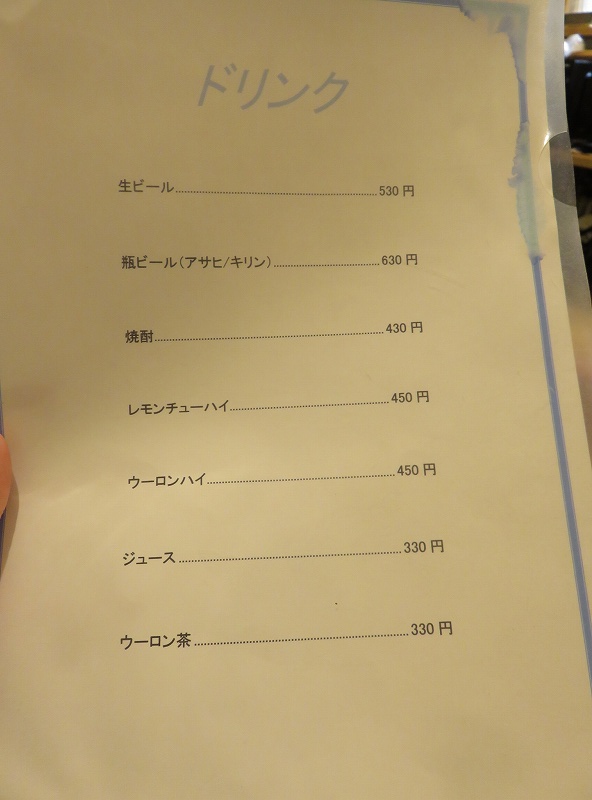 ドリンク
生ビール 530 円
瓶ビール(アサヒ/キリン) 630 円
焼酎 430 円
レモンチューハイ 450 円
ウーロンハイ 450 円
ジュース 330 円
ウーロン茶 330 円